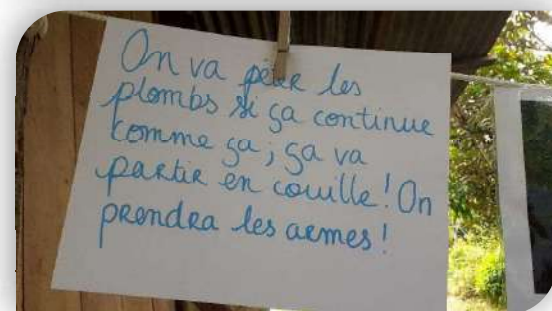 On va péter les
plombs si ça continue
comme ça ; ça va
partir en couille ! On
prendra les armes !